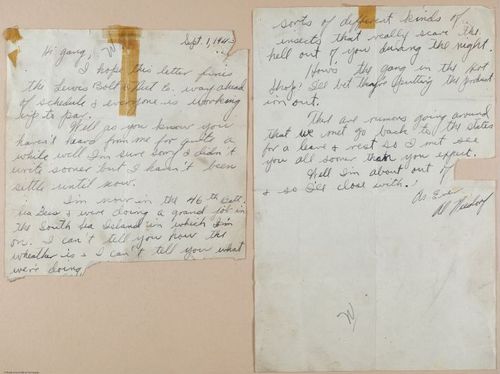 Sept. 1, 194
Hi gang,
I hope this letter finds
the Lewis Bolt & Nut Co. way ahead
of schedule & everyone is working
up to par.
Well as you know you
haven't heard from me for quite a
while well I'm sure sorry I didn't
write sooner but I hadn't been
settled until now.
I'm now in the 46th Batt.
Sea Bees & were doing a grand job in
the South Sea Island in which I'm
on. I can't tell you how the
wheather is & I can't tell you what
we're doing
sorts of different kinds of
insects that really scare the
hell out of you during the night.
Hows the gang in the
Shop? I'll bet theyre putting the
out.
There are rumors going around
that we met go back to the states
for a leave & rest so I met see
you all sooner than you expect.
Well I'm about out of
& so I'll close with.
As Ever
Al